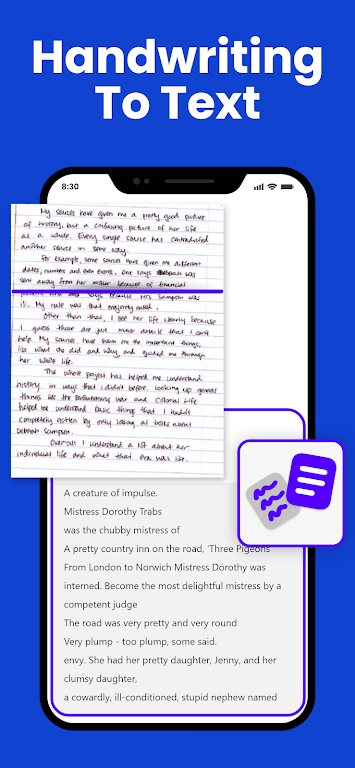 Handwriting
To Text
8:30
My sources have given me a pretty good picture
of history, but a confusing picture of her life
as a whole. Every single source has contradicted
another source in some way.
For example, some sources have given me different
dates, numbers and even events. One says was
sent away from her master because of financial
was
ill. My rule was that majority ruled.
Other than that, I see her life clearly because
I guess those are just minor details that I can't
help. My sources have shown me the important things,
like what she did and why and guided me through
her whole life.
The whole project has helped me understand
history in ways that I didn't before. Looking up general
things like the Revolutionary war and Colonial Life
helped me understand basic things that I hadn't
completely gotten by only looking at books about
Deborah Sampson.
Overall I understand a lot about her
individual life and what that era was like.
A creature of impulse.
Mistress Dorothy Trabs
was the chubby mistress of
A pretty country inn on the road, 'Three Pigeons
From London to Norwich Mistress Dorothy was
interned. Become the most delightful mistress by a
competent judge
The road was very pretty and very round
Very plump - too plump, some said.
envy. She had her pretty daughter, Jenny, and her
clumsy daughter,
a cowardly, ill-conditioned, stupid nephew named